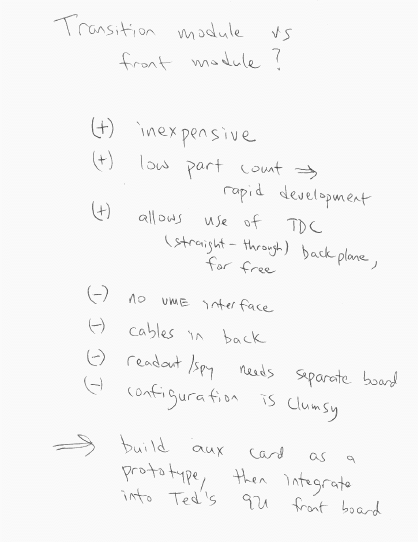 Transition module vs
front module?
(+) inexpensive
(+) low part count ⇒
rapid development
(+) allows use of TDC
(straight-through) backplane,
for free
(-) no VME interface
(-) cables in back
(-) readout/spy needs separate board
(-) configuration is clumsy
⇒ build aux card as a
prototype, then integrate
into Ted's 9U front board